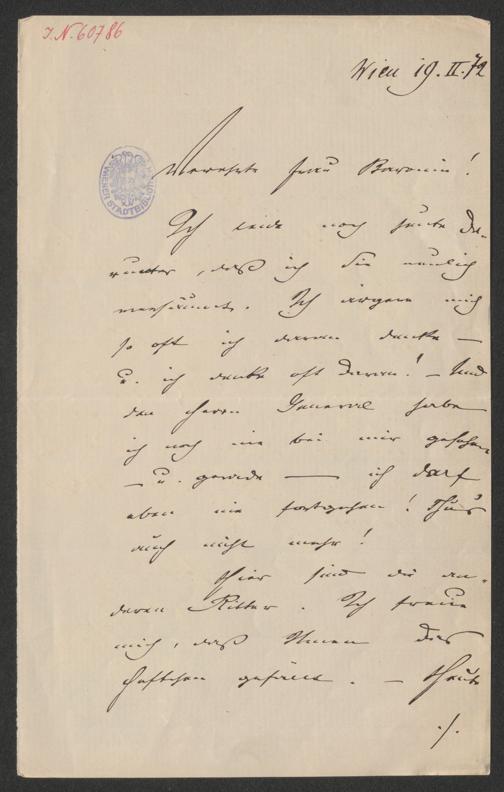 J.N. 60786
Wien 19. II. 72
WIENER STADTBIBLIOTHEK
Verehrte Frau Baronin!
Ich leide noch heute da-
runter, daß ich Sie neulich
versäumte. Ich ärgere mich
so oft ich daran denke —
u. ich denke oft daran! – Und
den Herrn General habe
ich noch nie bei mir gesehen
– u. gerade — ich darf
eben nie fortgehen! Thu's
auch nicht mehr!
Hier sind die an-
deren Ritter. Ich freue
mich, daß Ihnen das
Heftchen gefällt. – Heute
./.